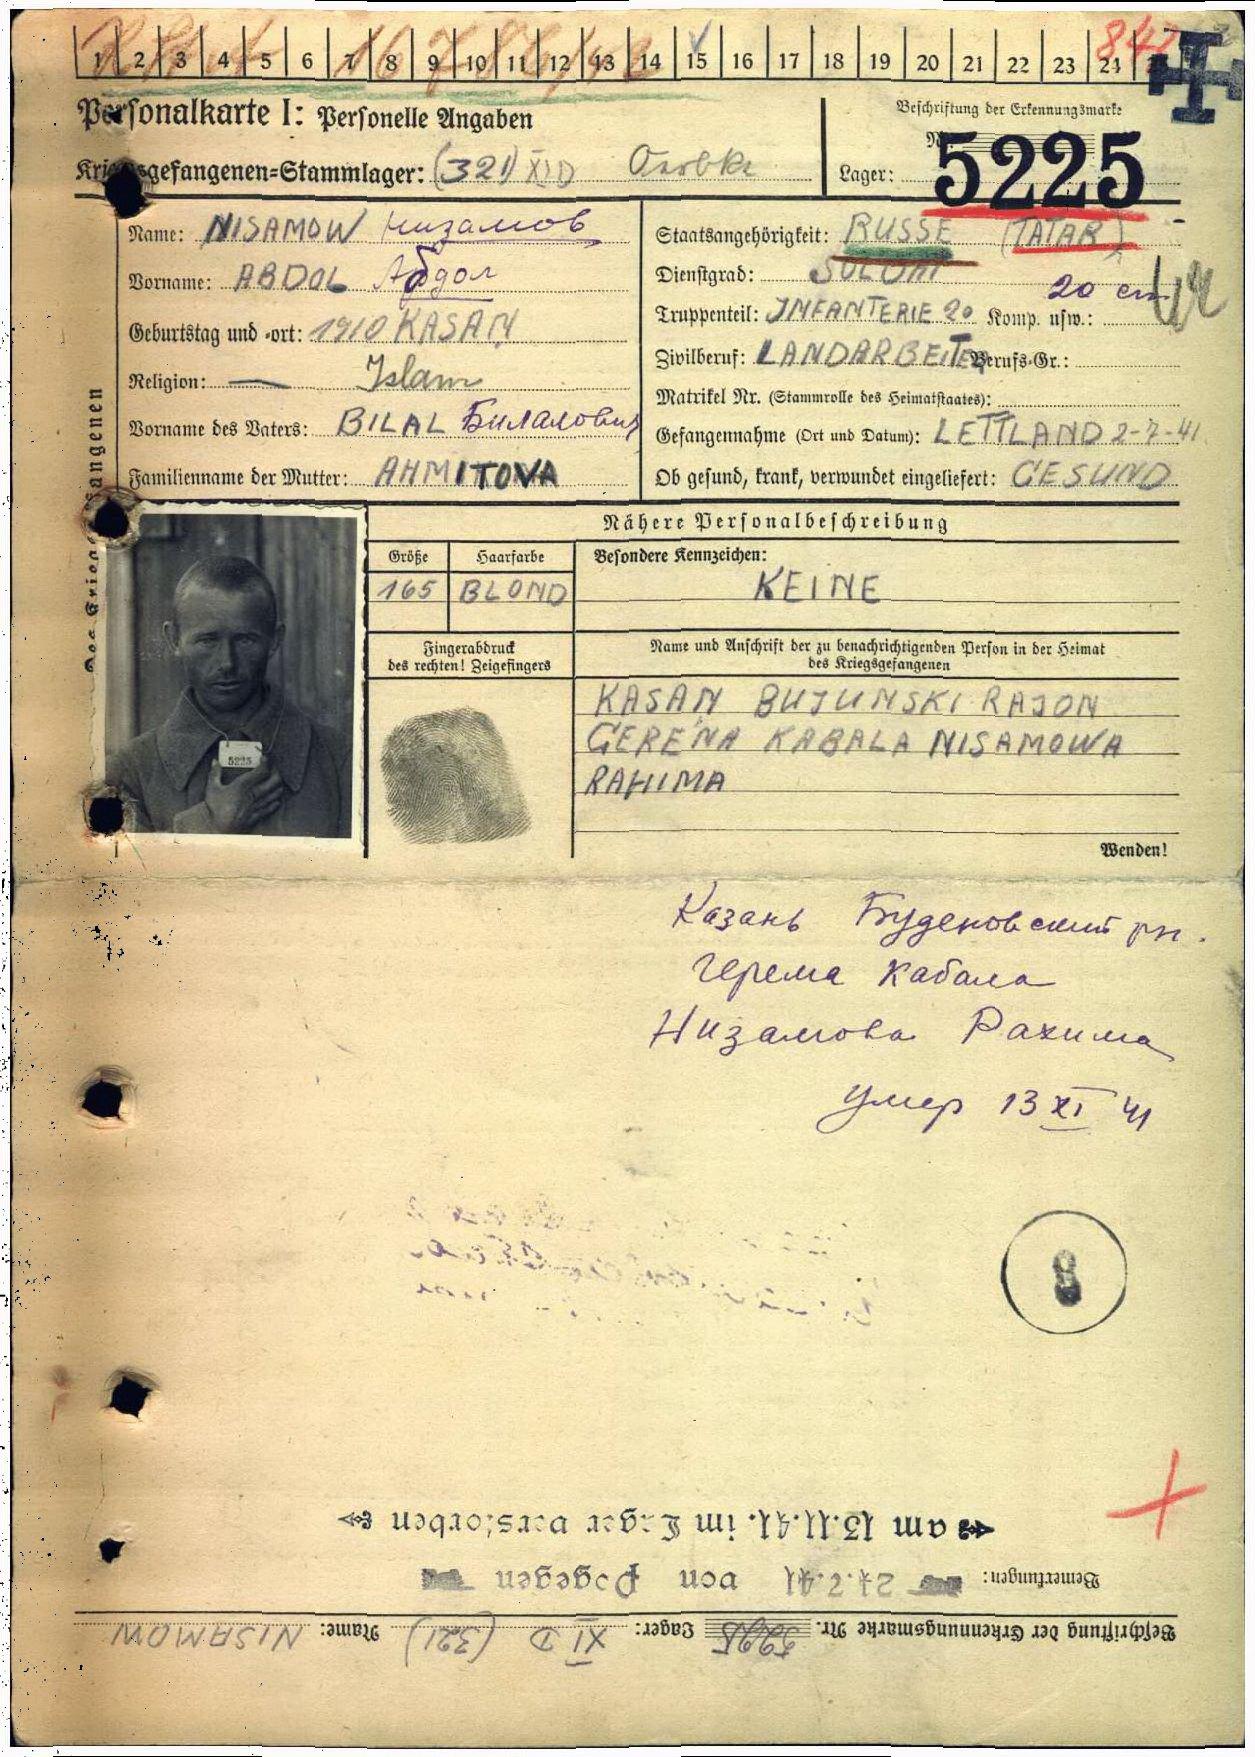 1 2 3 4 5 6 7 8 9 10 11 12 13 14 15 16 17 18 19 20 21 22 23 24
Personalkarte I: Personelle Angaben
Beschriftung der Erkennungsmarke
5225
Kriegsgefangenen-Stammlager: (321) XI D
Lager:
Name: NISAMOW Низамов
Vorname: ABDOL Абдол
Geburtstag und -ort: 1910 KASAN
Religion: — Islam
Vorname des Vaters: BILAL Билалович
Familienname der Mutter: AHMITOVA
Staatsangehörigkeit: RUSSE (TATAR)
Dienstgrad: SOLDAT
20 cm
Truppenteil: INFANTERIE 20 Komp. usw.:
Zivilberuf: LANDARBEITER Berufs-Gr.:
Matrikel Nr. (Stammrolle des Heimatstaates):
Gefangennahme (Ort und Datum): LETTLAND 2-7-41
Ob gesund, krank, verwundet eingeliefert: GESUND
Des Kriegsgefangenen
5225
Nähere Personalbeschreibung
Größe Haarfarbe Besondere Kennzeichen:
165 BLOND KEINE
Fingerabdruck
des rechten! Zeigefingers
Name und Anschrift der zu benachrichtigenden Person in der Heimat
des Kriegsgefangenen
KASAN BUJUNSKI RAJON
GERENA KABALA NISAMOWA
RAHIMA
Wenden!
Казань Буденовский рн.
Герема Кабала
Низамова Рахима
умер 13 XI 41
8
am 13.11.41. im Lager verstorben
Bemerkungen: 27.7.41 von Pogegen
Beschriftung der Erkennungsmarke Nr. 5225 Lager: XI D (321) Name: NISAMOW